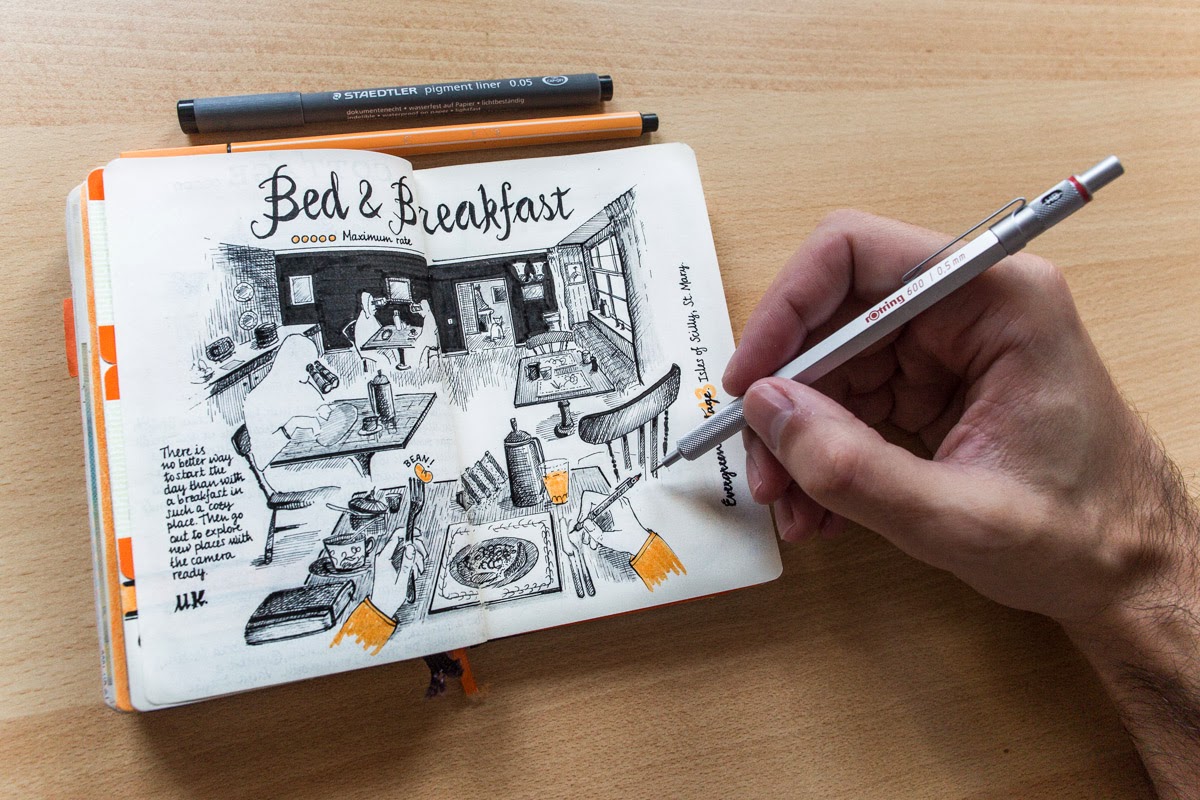 STAEDTLER pigment liner 0.05
dokumentenecht • wasserfest auf Papier • lichtbeständig
indelible • waterproof on paper • lightfast
Bed & Breakfast
Maximum rate
There is
no better way
to start the
day than with
a breakfast in
such a cozy
place. Then go
out to explore
new places with
the camera
ready.
U.K.
BEAN!
Evergreen Isles of Scilly, St Mary
rOtring 600 | 0.5 mm